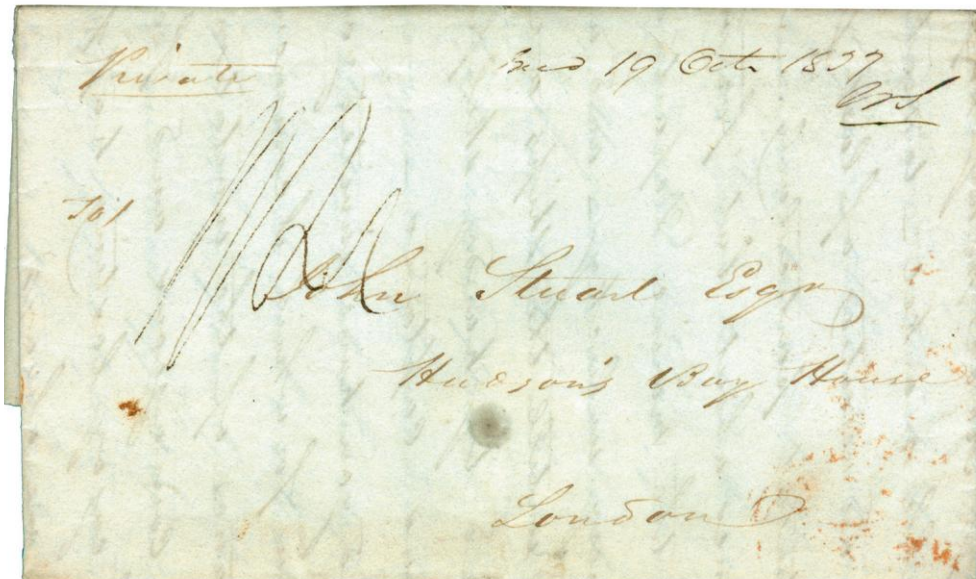 Private
19 Octr 1837
To/
John Stuart Esqr
Hudson's Bay House
London